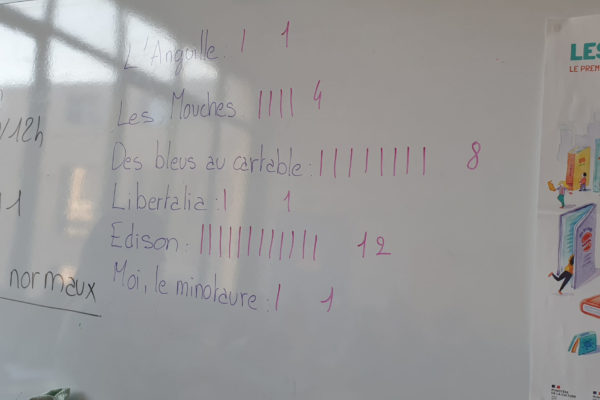 L'Anguille : | 1
Les Mouches : |||| 4
/12h
Des bleus au cartable : |||||||| 8
Libertalia : | 1
1
Edison : |||||||||||| 12
normaux
Moi, le minotaure : | 1
LES
LE PREM